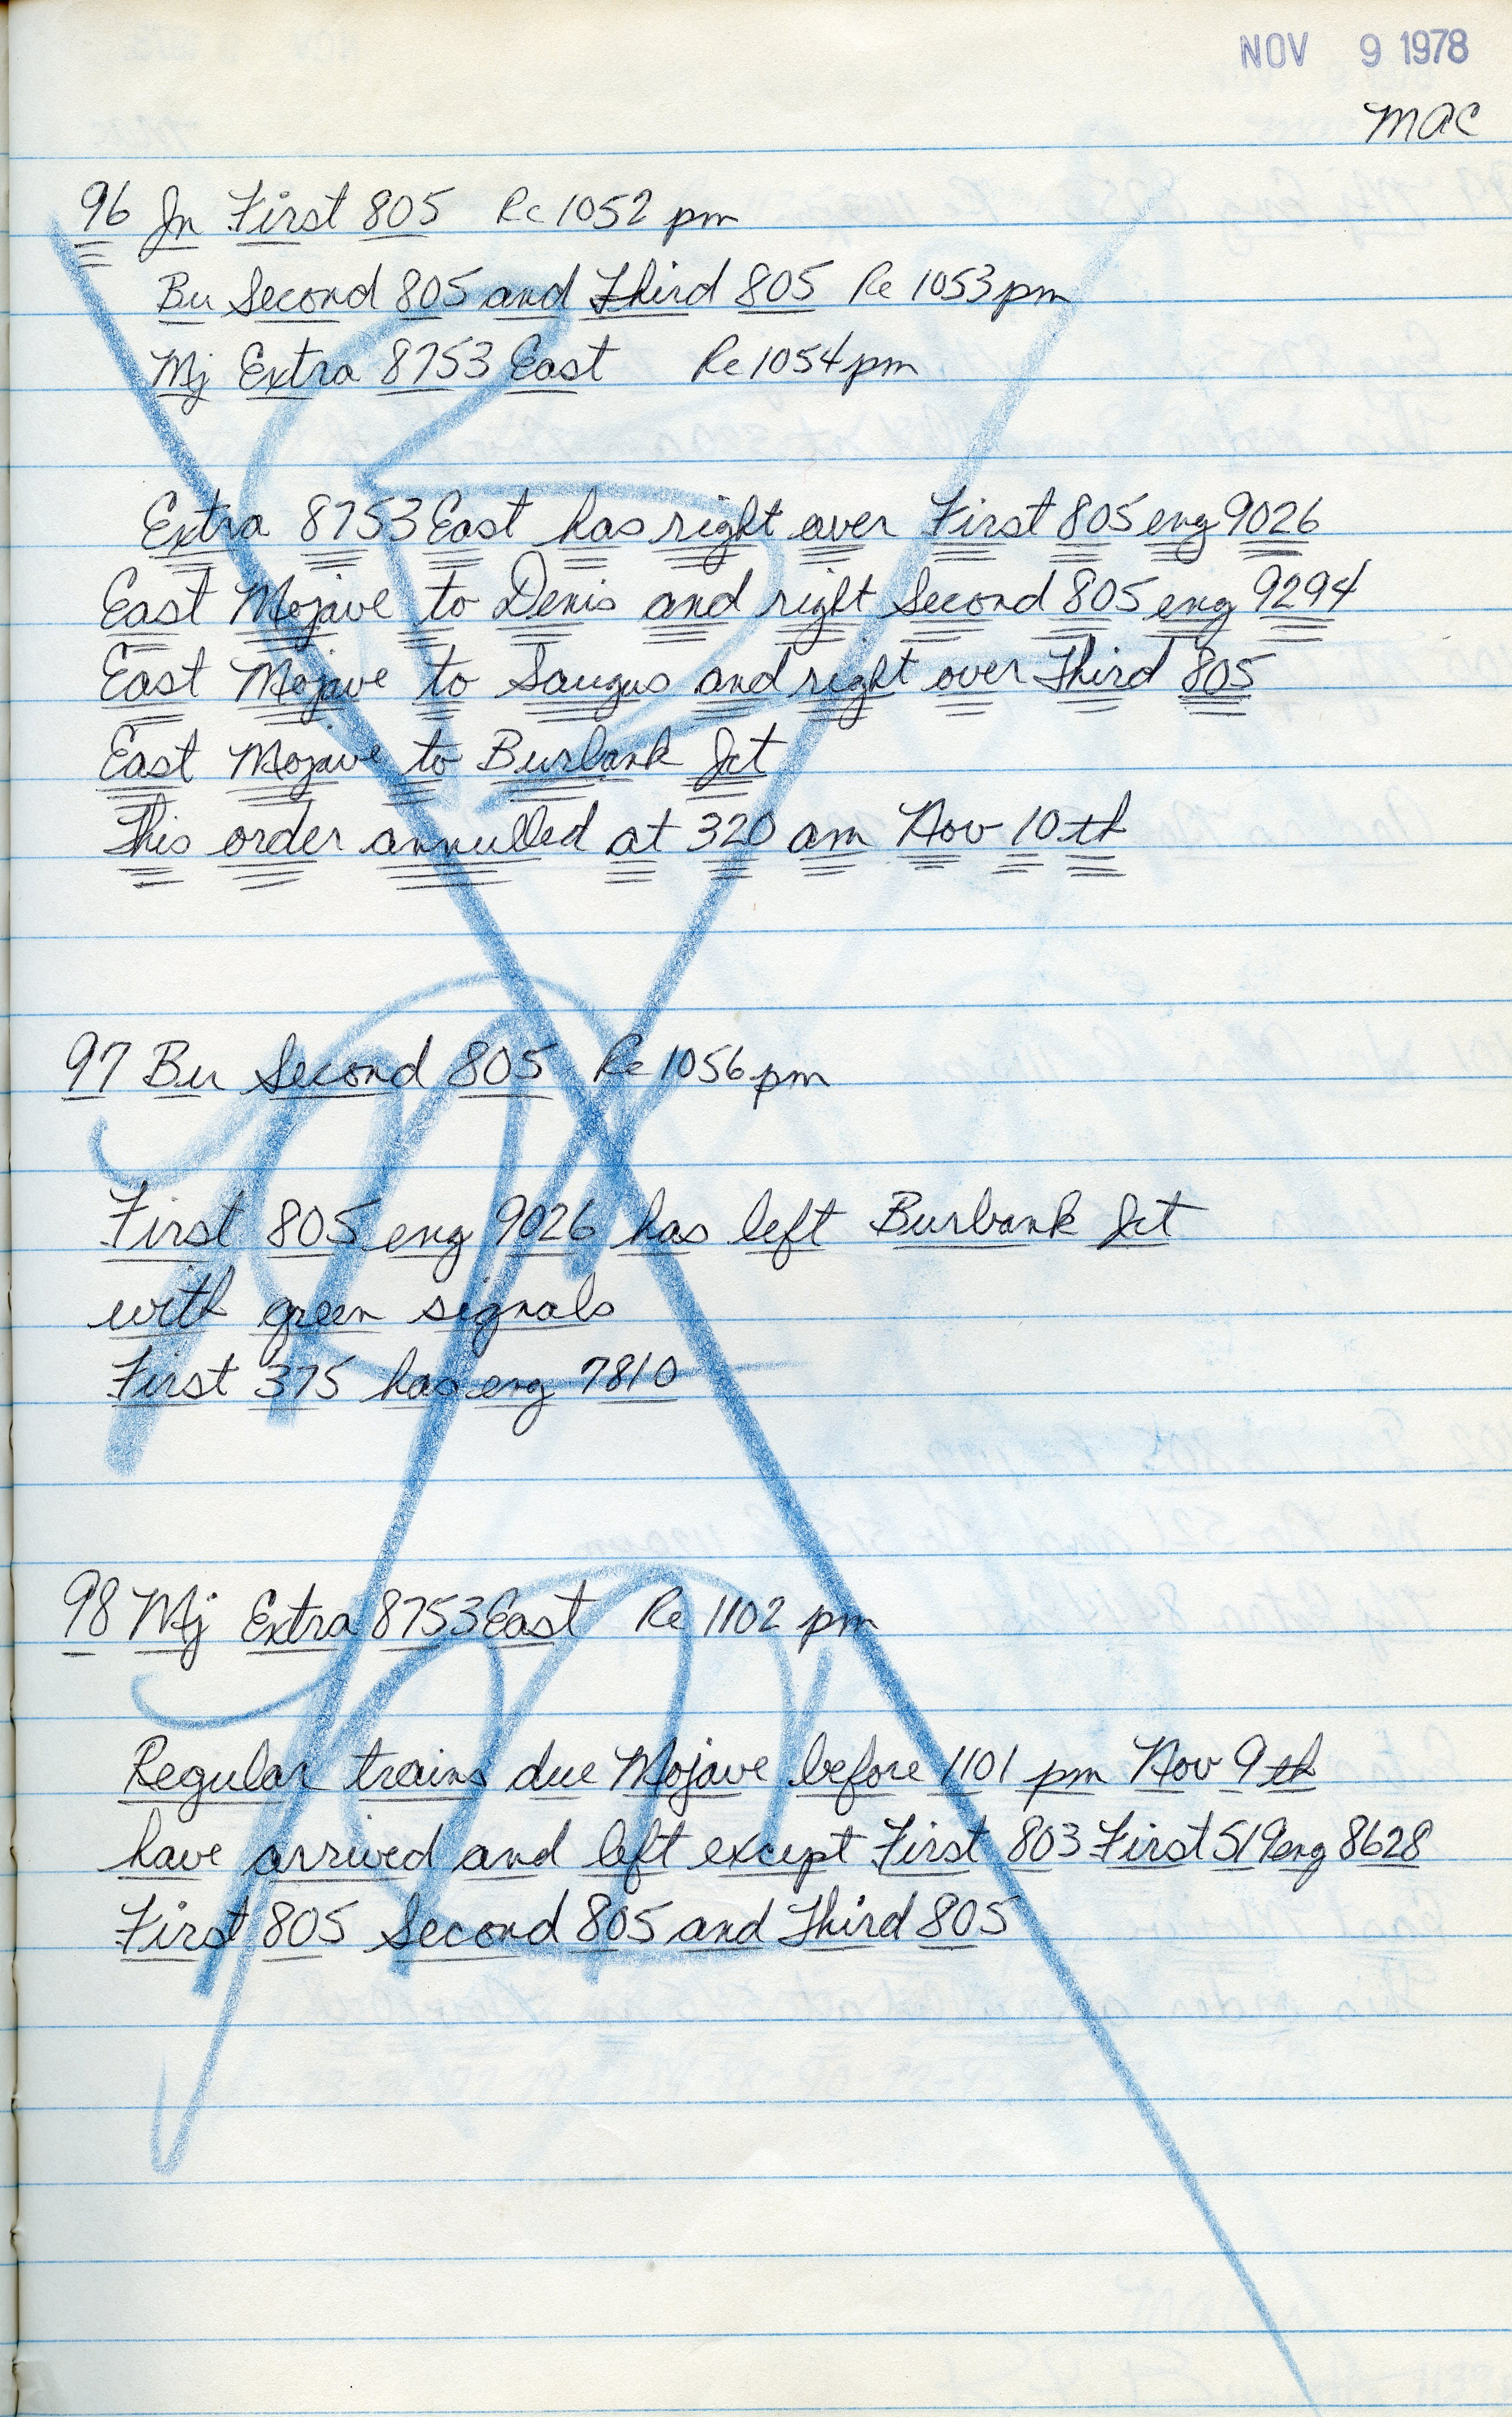 NOV 9 1978
MAC
96 Jn First 805 Rc 1052 pm
Bu Second 805 and Third 805 Re 1053 pm
Mj Extra 8753 East Re 1054 pm
Extra 8753 East has right over First 805 eng 9026
East Mojave to Denis and right Second 805 eng 9294
East Mojave to Saugus and right over Third 805
East Mojave to Burbank Jct
This order annulled at 320 am Nov 10th
97 Bu Second 805 Re 1056 pm
First 805 eng 9026 has left Burbank Jct
with green signals
First 375 has eng 7810
98 Mj Extra 8753 East Re 1102 pm
Regular trains due Mojave before 1101 pm Nov 9th
have arrived and left except First 803 First 519 eng 8628
First 805 Second 805 and Third 805